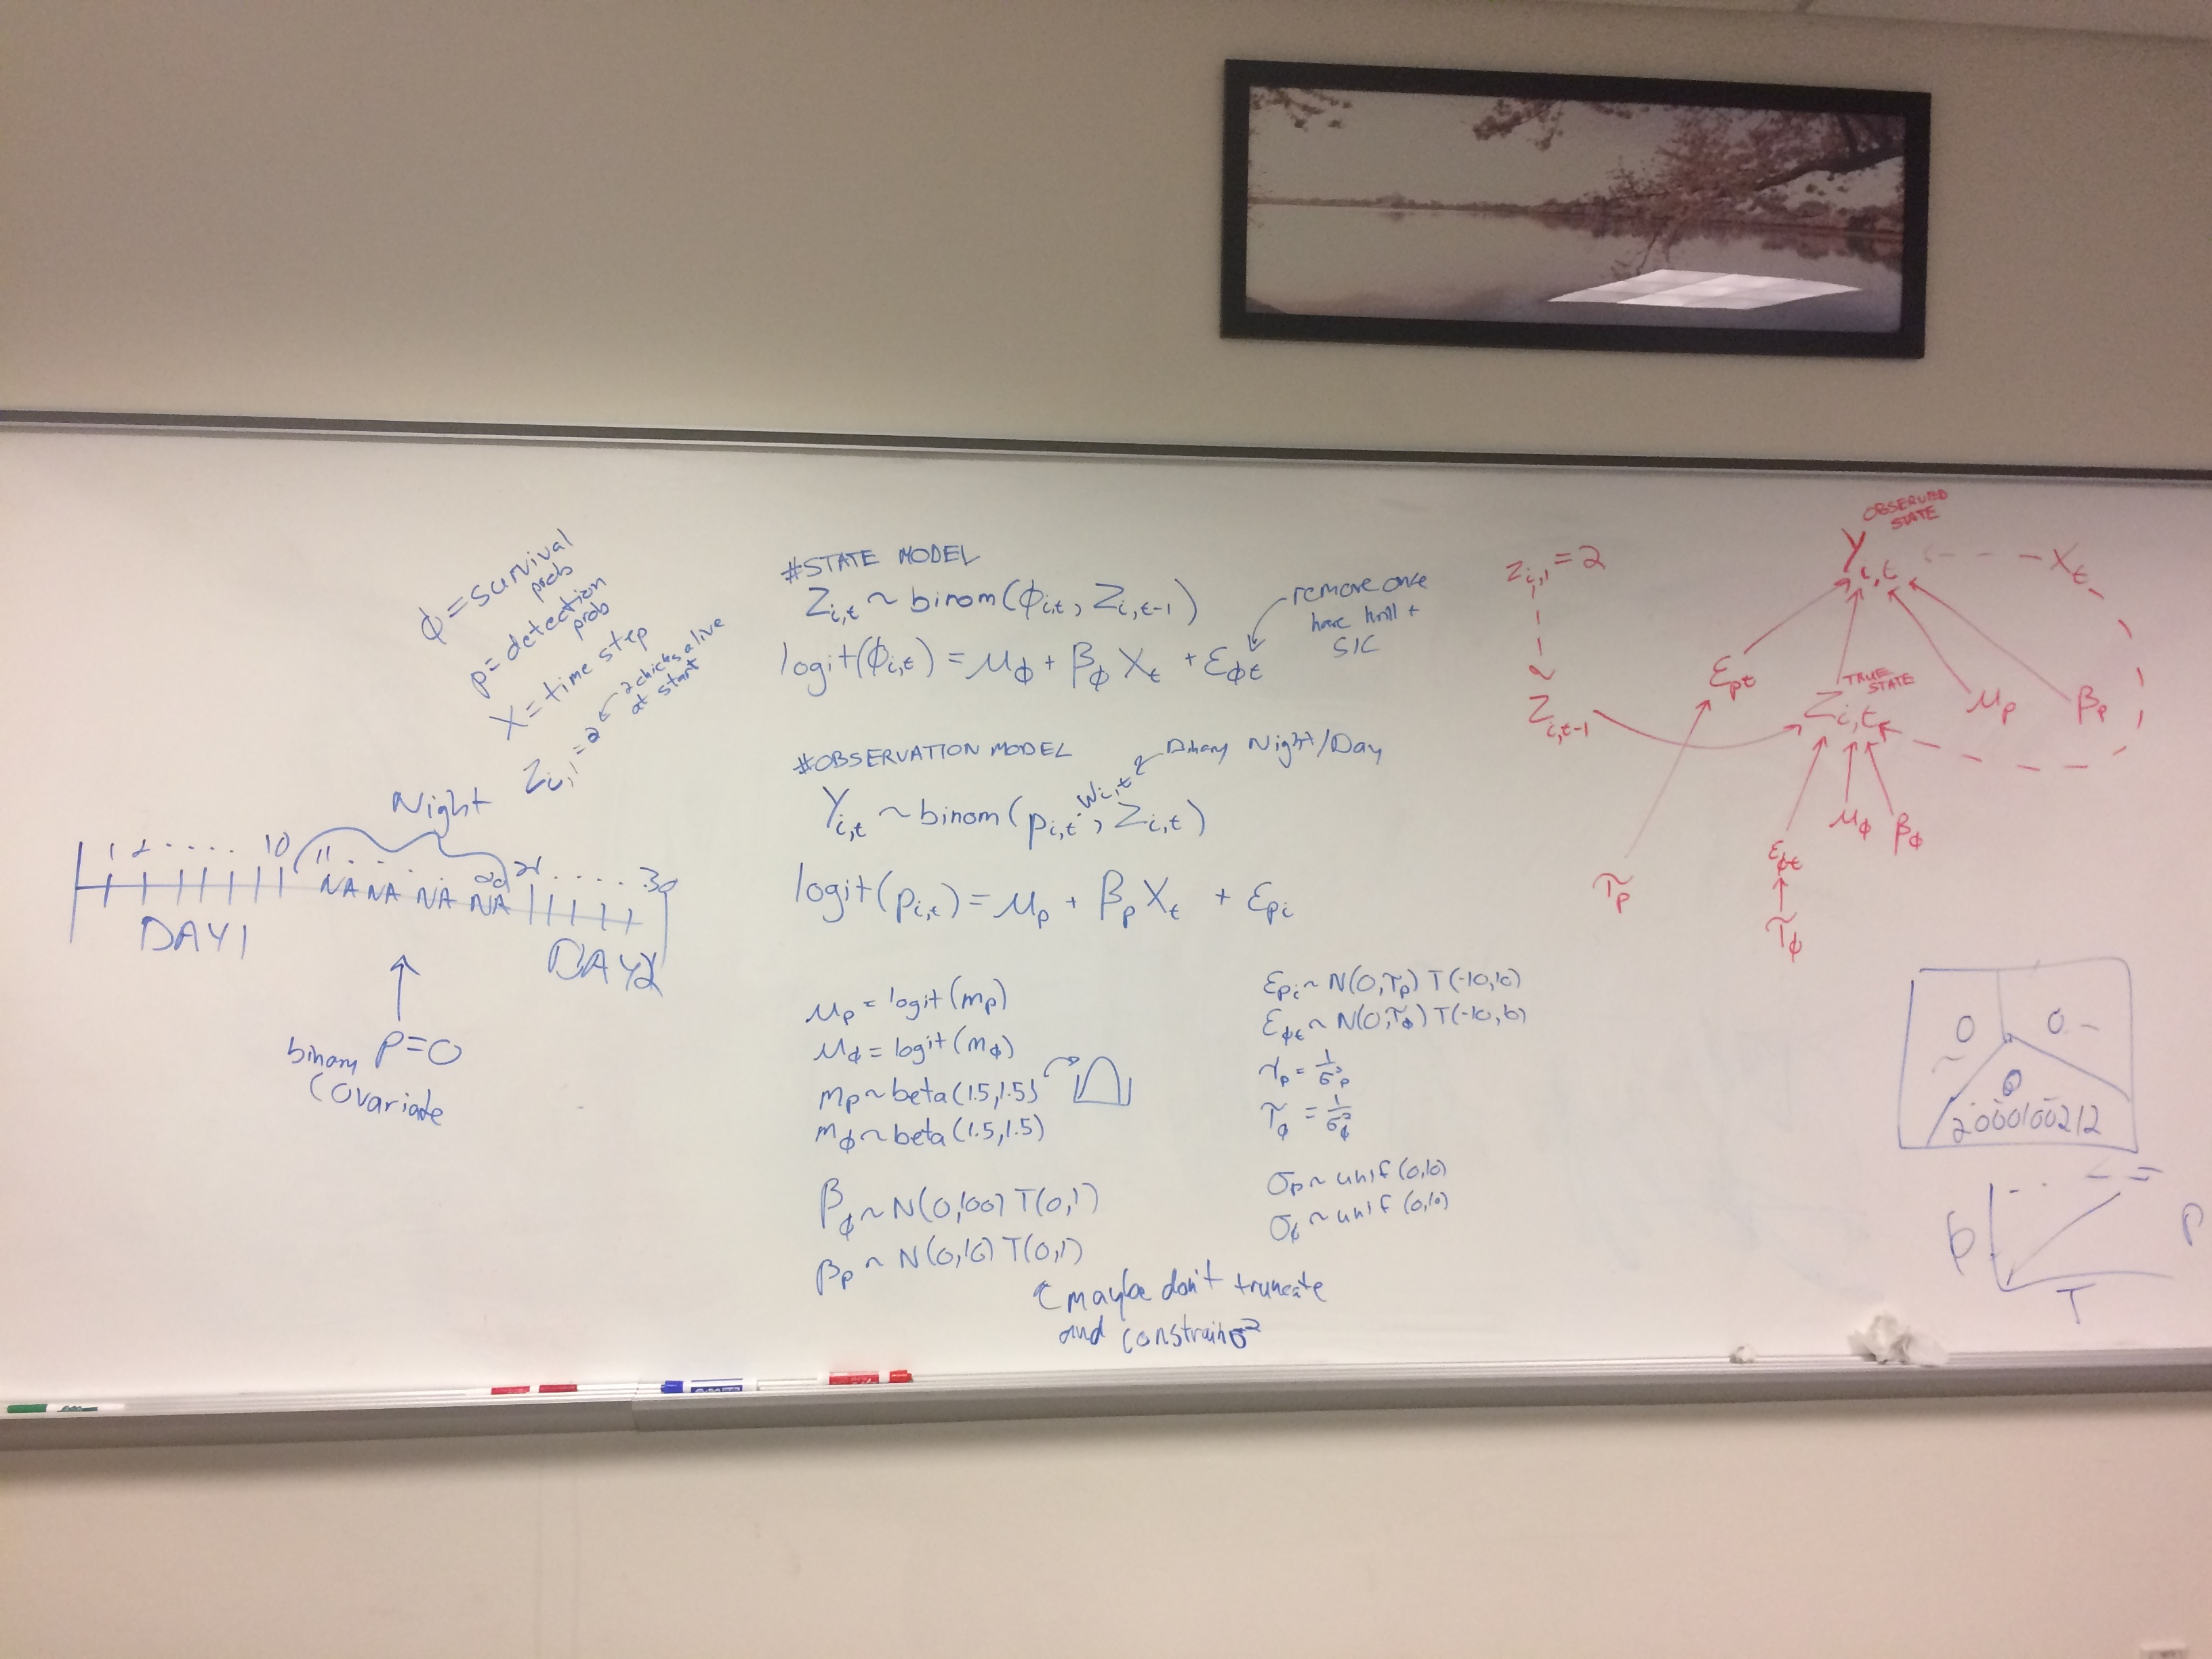 ϕ = survival
prob
p = detection
prob
X = time step
Z i,1 = 2
2 chicks alive
at start
Night
1 2 . . . . . 10 11 . . . 20 21 . . . . 30
NA NA NA NA
DAY 1
DAY 2
binary p=0
Covariate
#STATE MODEL
Z i,t ~ binom(ϕ i,t, Z i,t-1)
remove once
have
SIC
logit(ϕ i,t) = μ ϕ + β ϕ X t + ε ϕt
#OBSERVATION MODEL
Binary Night/Day
Y i,t ~ binom(p i,t · w i,t, Z i,t)
logit(p i,t) = μ p + β p X t + ε pi
μ p = logit(m p)
μ ϕ = logit(m ϕ)
m p ~ beta(1.5,1.5)
m ϕ ~ beta(1.5,1.5)
β ϕ ~ N(0,100) T(0,1)
β p ~ N(0,10) T(0,1)
maybe don't truncate
and constrain σ²
ε pi ~ N(0,τ p) T(-10,10)
ε ϕt ~ N(0,τ ϕ) T(-10,10)
τ p = 1/σ² p
τ ϕ = 1/σ² ϕ
σ p ~ unif(0,10)
σ ϕ ~ unif(0,10)
OBSERVED
STATE
Z i,1 = 2
Y i,t
X t
ε pt
TRUE
STATE
Z i,t-1
Z i,t
μ p
β p
τ p
ε ϕt
μ ϕ
β ϕ
τ ϕ
0 0
0
2000100212
p
T
P